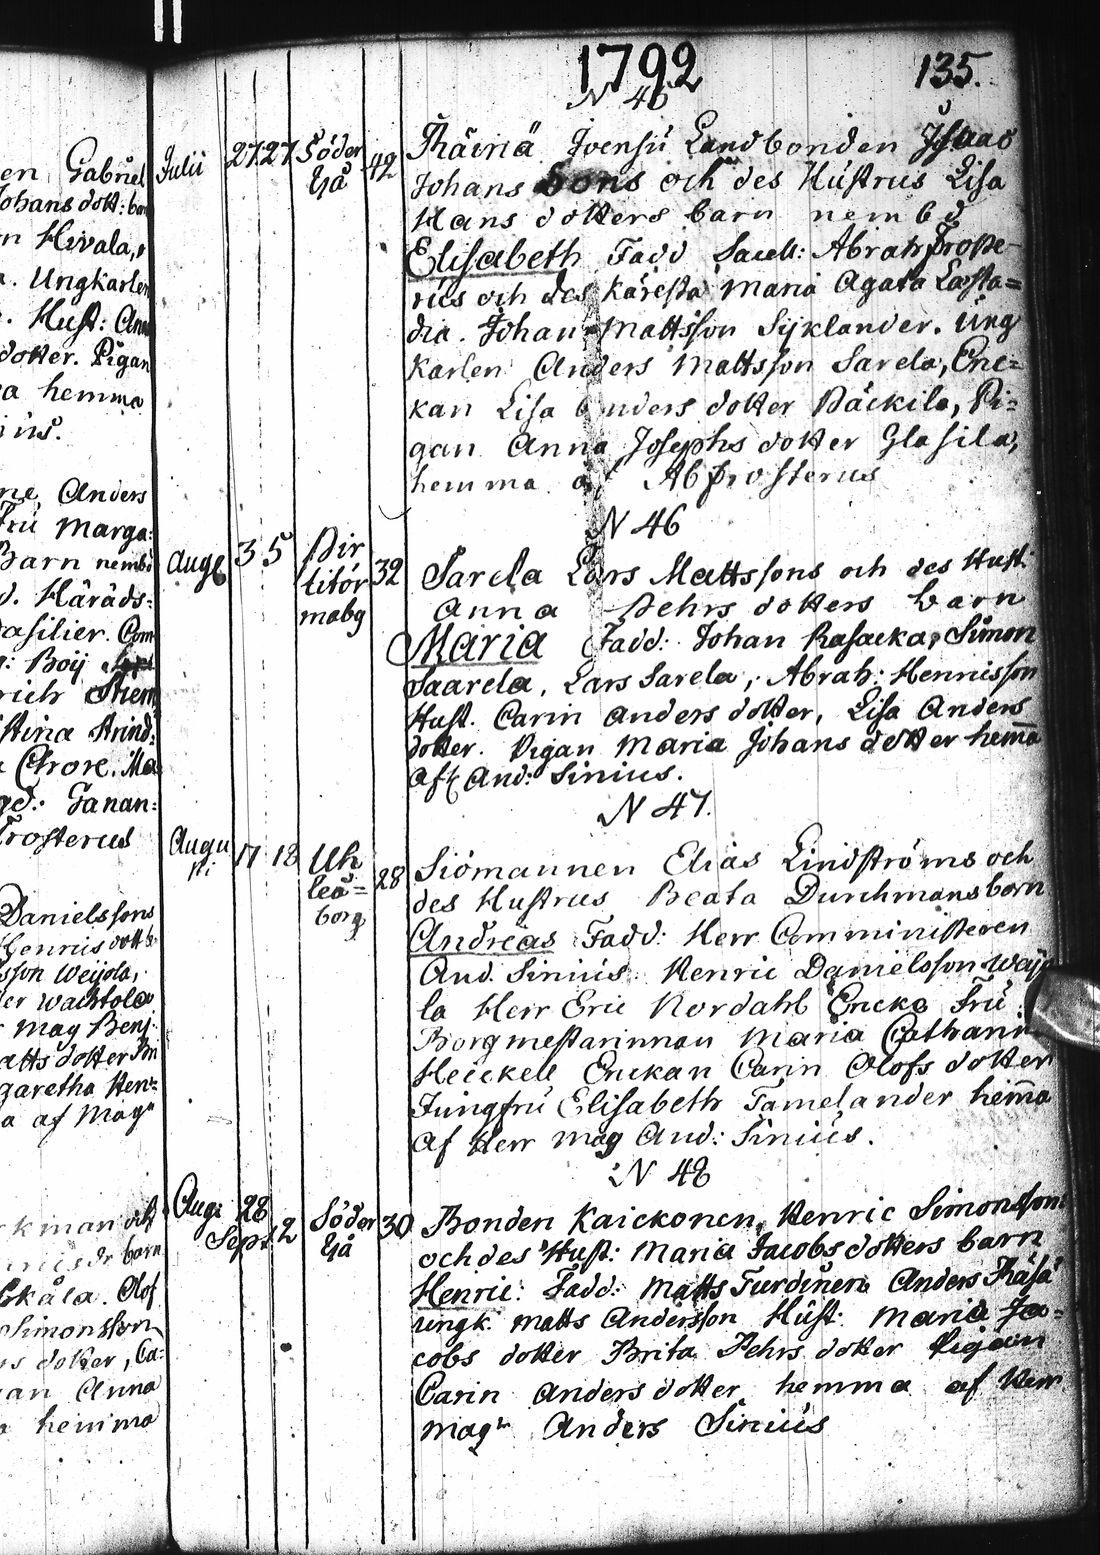 1792
135.
N 46
Julii 27 27 Söder
Ejå 42
Landbonden Isaac
Johans Sons och des Hustrus Lisa
Hans dotters barn nembd
Elisabeth Fadd Sacell: Abrah Froste-
rus och des käresta Maria Agata Casta=
dia. Johan Mattsson Sijklander. Ung
karlen Anders Mattsson Sarela, Enc=
kan Lisa Anders dotter Päckilo, Pi=
gan Anna Josephs dotter Glasila,
hemma af Ab Frosterus
N 46
Aug 3 5 Pir
titör
mabg 32
Sarela Lars Mattssons och des Hust.
Anna Pehrs dotters barn
Maria Fadd: Johan Rasacka, Simon
Saarela, Lars Sarela, Abrah: Hennisson
Hust. Carin Anders dotter, Lisa Anders
dotter. Pigan Maria Johans dotter hem̄a
af And: Sinius.
N 47.
Augu
sti 17 18 Uh
leå=
borg 28
Siömannen Elias Lindströms och
des Hustrus Beata Durchmans barn
Andreas Fadd: Herr Comministeren
And. Sinius Henric Danielsson Weijo
la Herr Eric Nordahl Encke Fru
Borgmestarinnan Maria Catharin
Heickell Enckan Carin Olofs dotter
Jungfru Elisabeth Tamelander hem̄a
af Herr Mag And: Sinius.
N 48
Aug: 28
Sept. 2 Söder
Ejå 30
Bonden Kaickonen, Henric Simonsson:
och des Hust: Maria Jacobs dotters barn
Henric: Fadd: Matts Turdinen Anders Räsä
ungk. Matts Andersson Hust: Maria Ja=
cobs dotter Brita Pehrs dotter Pigan
Carin Anders dotter hemma af Herr
Magr Anders Sinius
en Gabriel
Johans dott: bar
Hivala,
Ungkarlen
Hust: Ann
dotter. Pigan
a hemma
Anders
Fru Marga:
Barn nembd
Häräds:
Com
Boij
rich
stina
Ma
Tanan:
Frosterus
Danielssons
Henriis dott
sson Weijola,
er Wachtola
Mag Benj
atts dotter
garetha Hen=
a af Magr
kman och
barn
Olof
Simonsson
s dotter, Ca:
an Anna
hemma